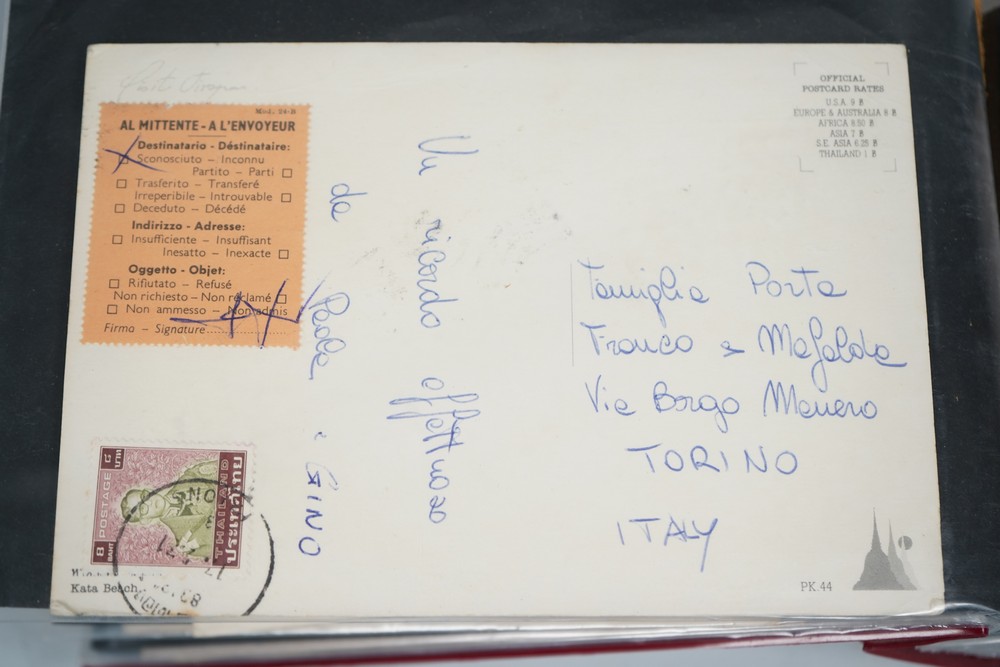 Mod. 24-B
AL MITTENTE - A L'ENVOYEUR
Destinatario - Déstinataire:
Sconosciuto - Inconnu
Partito - Parti
Trasferito - Transferé
Irreperibile - Introuvable
Deceduto - Décédé
Indirizzo - Adresse:
Insufficiente - Insuffisant
Inesatto - Inexacte
Oggetto - Objet:
Rifiutato - Refusé
Non richiesto - Non réclamé
Non ammesso - Non admis
Firma - Signature
OFFICIAL
POSTCARD RATES
U.S.A. 9 ฿
EUROPE & AUSTRALIA 8 ฿
AFRICA 8.50 ฿
ASIA 7 ฿
S.E. ASIA 6.25 ฿
THAILAND 1 ฿
Un ricordo affettuoso
da Paola e GINO
Famiglia Porta
Franco e Mafalda
Via Borgo
TORINO
ITALY
8 บาท
8 BAHT POSTAGE
THAILAND
ประเทศไทย
Kata Beach
PK.44